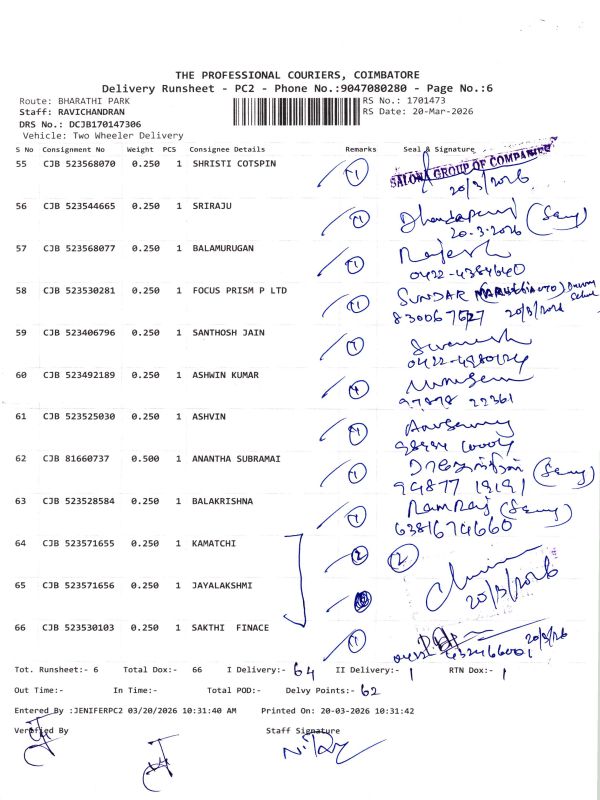 THE PROFESSIONAL COURIERS, COIMBATORE
Delivery Runsheet - PC2 - Phone No.:9047080280 - Page No.:6
Route: BHARATHI PARK RS No.: 1701473
Staff: RAVICHANDRAN RS Date: 20-Mar-2026
DRS No.: DCJB170147306
Vehicle: Two Wheeler Delivery
S No Consignment No Weight PCS Consignee Details Remarks Seal & Signature
55 CJB 523568070 0.250 1 SHRISTI COTSPIN 1 SALONA GROUP OF COMPANIES
20/3/2026
56 CJB 523544665 0.250 1 SRIRAJU 1 Dhandapani
20.3.2026
57 CJB 523568077 0.250 1 BALAMURUGAN 1 Rajesh
0422-4384640
58 CJB 523530281 0.250 1 FOCUS PRISM P LTD 1 SUNDAR
20/3/2026
59 CJB 523406796 0.250 1 SANTHOSH JAIN 1
60 CJB 523492189 0.250 1 ASHWIN KUMAR
97878 22361
61 CJB 523525030 0.250 1 ASHVIN 1
62 CJB 81660737 0.500 1 ANANTHA SUBRAMAI 1
94877 19191
63 CJB 523528584 0.250 1 BALAKRISHNA 1 Ramraj
6381674660
64 CJB 523571655 0.250 1 KAMATCHI 2 2
65 CJB 523571656 0.250 1 JAYALAKSHMI
20/3/2026
66 CJB 523530103 0.250 1 SAKTHI FINACE 1 20/3/26
Tot. Runsheet:- 6 Total Dox:- 66 I Delivery:- 64 II Delivery:- 1 RTN Dox:- 1
Out Time:- In Time:- Total POD:- Delvy Points:- 62
Entered By :JENIFERPC2 03/20/2026 10:31:40 AM Printed On: 20-03-2026 10:31:42
Verified By Staff Signature